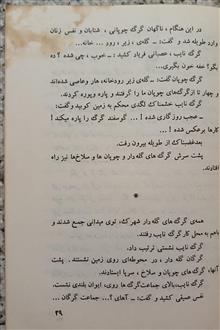 در این هنگام، ناگهان گرگ چوپانی، شتابان و نفس زنان
وارد طویله شد و گفت: ــ گله‌ی، زیر، روو ... خانه...
گرگ نایب، عصبانی فریاد کشید: ــ خوب، چی شده؟ ده
بگو! خفه خون بگیری...
گرگ چوپان گفت: ــ گله‌ی زیررودخانه، هار وعاصی شده‌اند
و چهار تا ازگرگ‌های چوپان ما را گرفتند و پاره وپوره کردند.
گرگ نایب خشمناک لگدی محکم به زمین کوبید وگفت:
ــ عجب روزگاری شده!... گوسفند گرگ را پاره میکند!
کارها برعکس شده!...
بعدغضبناک از طویله بیرون رفت.
پشت سرش گرگ های گله دار و چوپان و سلاخ‌ها نیز راه
افتادند.
*
همه‌ی گرگ های گله‌دار شهرک، توی میدانی جمع شدند و
باهم به محل کار گرگ نایب رفتند.
گرگ نایب نشستی ترتیب داد.
گرگان گله دار، در محوطه‌ای روی زمین نشستند. پشت
آنها، گرگ های چوپان و سلاخ، سرپا ایستادند.
گرگ نایب، بالای جماعت گرگ ها، روی، ایوان بلندی نشست.
نفس عمیقی کشید و گفت: ــ آهای؟... جماعت گرگان ...
۳۹